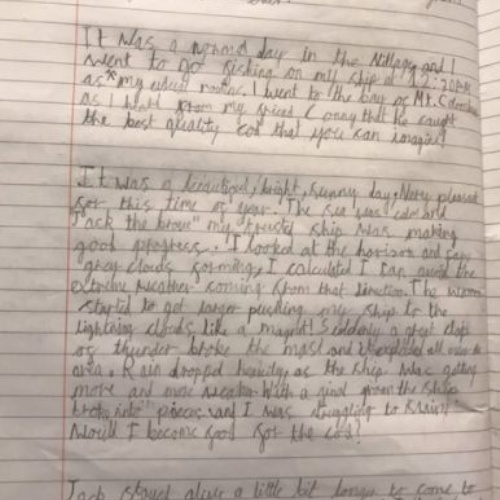 It was a normal day in the village and I
went to go fishing on my ship at 12:30PM
as my usual routine. I went to the bay of Mt.
as I heard from my friend Conny that he caught
the best quality cod that you can imagine!
It was a beautiful, bright, sunny day, Very pleased
for this time of year. The sea was calm and
"Jack the brave" my trusted ship was making
good progress. I looked at the horizon and saw
gray clouds forming, I calculated I can avoid the
extreme weather coming from that direction. The
started to get larger pulling my ship to the
lightning clouds like a magnet! Suddenly a great clap
of thunder broke the mast and it exploded all over the
area. Rain dropped heavily, as the ship was getting
more and more weaker. With a final groan the ship
broke into pieces and I was struggling to
Would I become food for the cod?
Jack stayed alive a little bit longer to come to